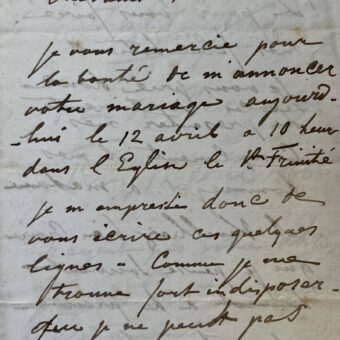 je vous remercie pour
la bonté de m'annoncer
votre mariage aujourd
-hui le 12 avril a 10 heur
dans l'Eglise le Ste Trinité
je m'empresse donc de
vous écrire ces quelques
lignes - Comme je me
trouve fort indisposer
que je ne peut pas